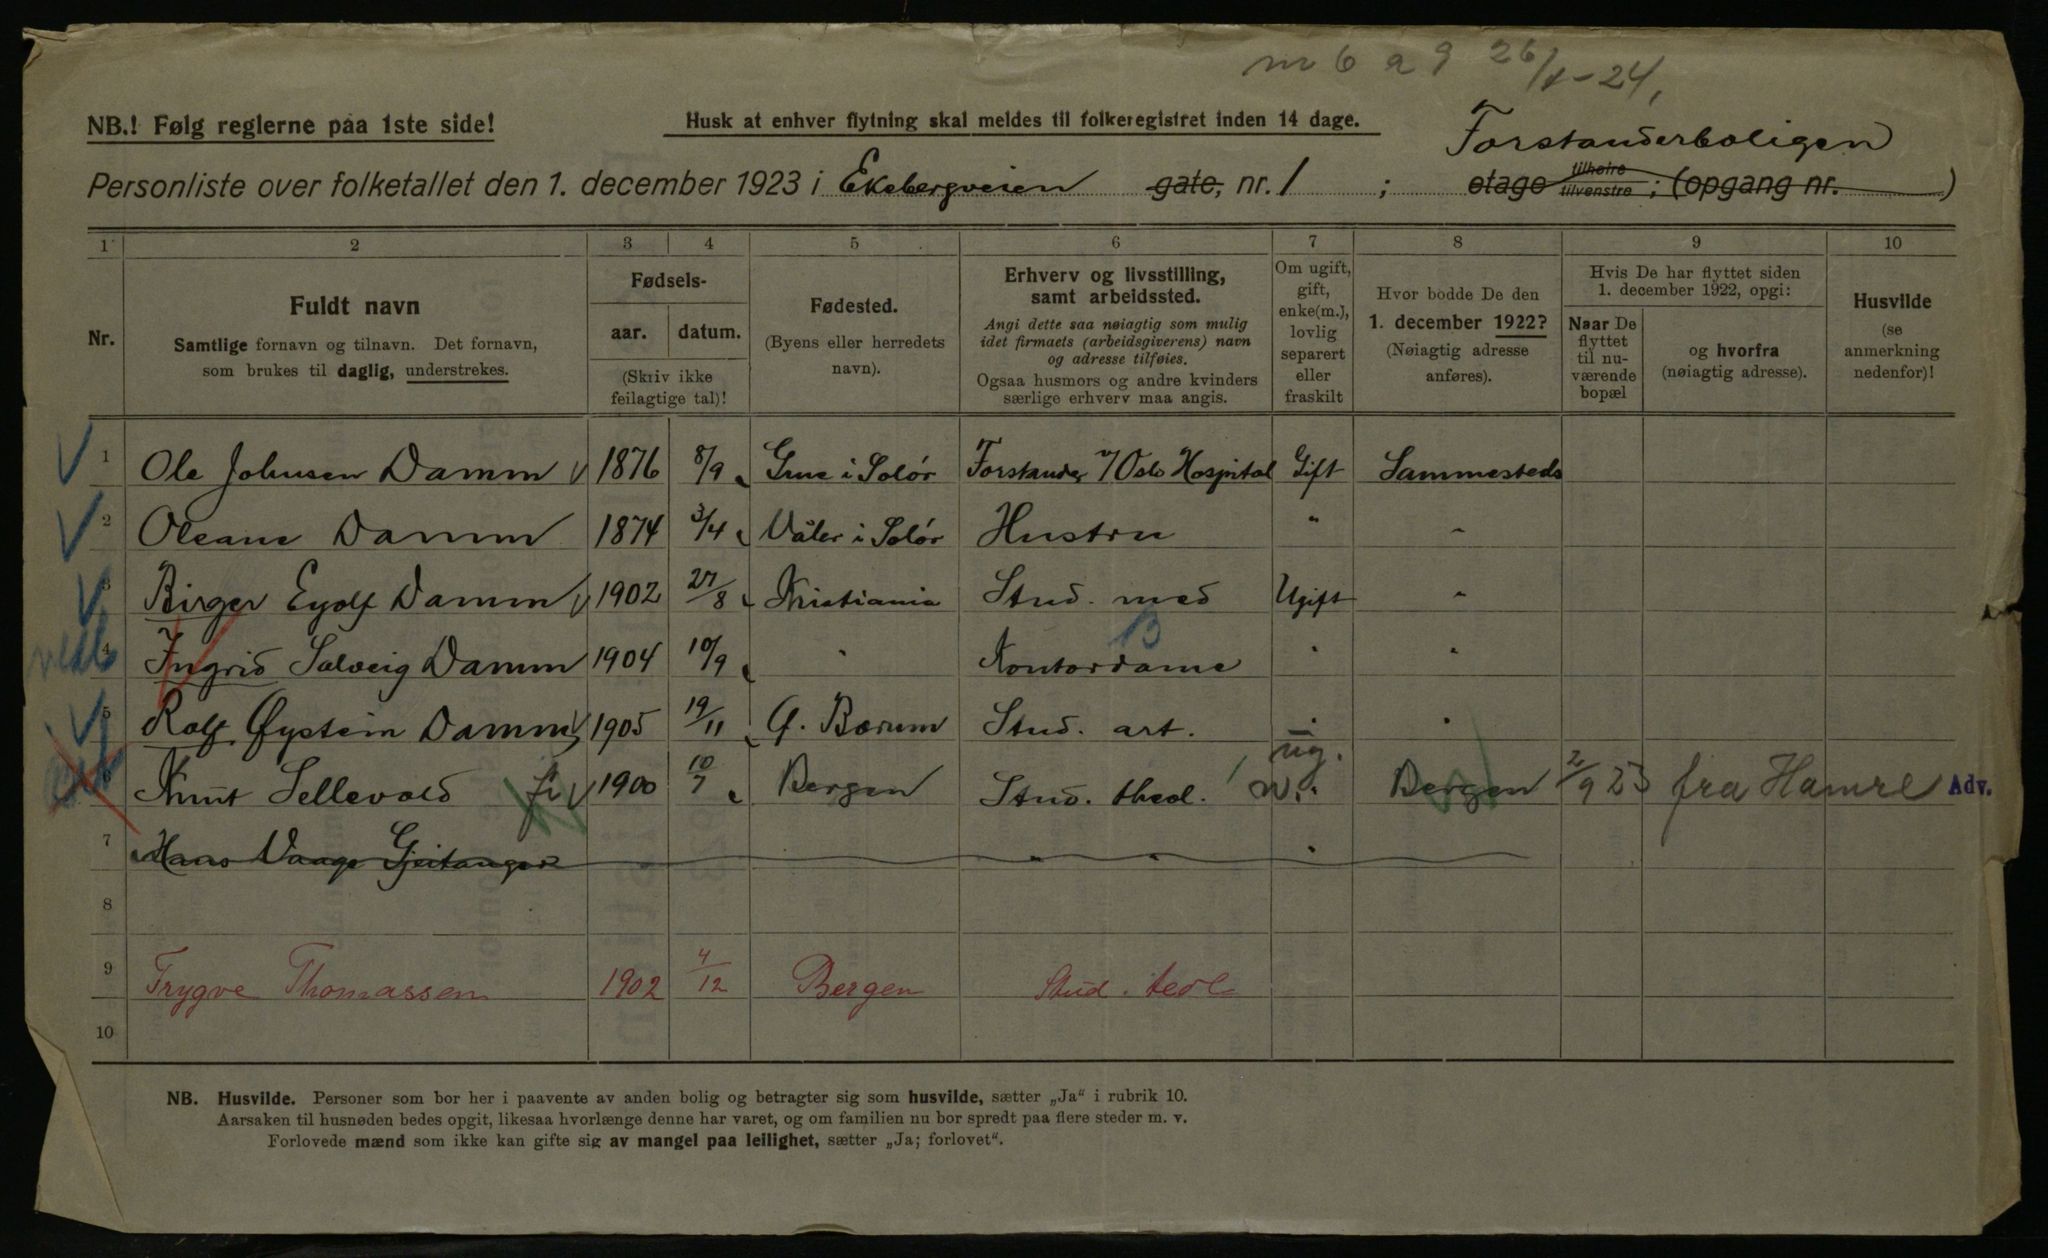 m 6 a 9 26/1-24,
NB.! Følg reglerne paa 1ste side!
Husk at enhver flytning skal meldes til folkeregistret inden 14 dage.
Forstanderboligen
Personliste over folketallet den 1. december 1923 i Ekebergveien gate, nr. 1 ; etage tilhøire tilvenstre ; (opgang nr. )
1 2 3 4 5 6 7 8 9 10
Nr.
Fuldt navn
Samtlige fornavn og tilnavn. Det fornavn,
som brukes til daglig, understrekes.
Fødsels-
aar. datum.
(Skriv ikke
feilagtige tal)!
Fødested.
(Byens eller herredets
navn).
Erhverv og livsstilling,
samt arbeidssted.
Angi dette saa nøiagtig som mulig
idet firmaets (arbeidsgiverens) navn
og adresse tilføies.
Ogsaa husmors og andre kvinders
særlige erhverv maa angis.
Om ugift,
gift,
enke(m.),
lovlig
separert
eller
fraskilt
Hvor bodde De den
1. december 1922?
(Nøiagtig adresse
anføres).
Hvis De har flyttet siden
1. december 1922, opgi:
Naar De
flyttet
til nu-
værende
bopæl
og hvorfra
(nøiagtig adresse).
Husvilde
(se
anmerkning
nedenfor)!
1 Ole Johnsen Damm 1876 8/9 Grue i Solør Forstander v/ Oslo Hospital Gift Sammesteds
2 Oleane Damm 1874 3/4 Våler i Solør Hustru " "
3 Birger Eyolf Damm 1902 27/8 Kristiania Stud. med Ugift "
B
4 Ingrid Solveig Damm 1904 10/9 " Kontordame " "
5 Rolf Øystein Damm 1905 19/11 Ø. Bærum Stud. art. " "
ug.
6 Knut Sellevold 1900 10/7 Bergen Stud. theol. " Bergen 2/9 23 fra Hamre Adv.
7 Hans Vaage Gjeitanger " " "
8
9 Trygve Thomassen 1902 4/12 Bergen Stud. teol
10
NB. Husvilde. Personer som bor her i paavente av anden bolig og betragter sig som husvilde, sætter „Ja“ i rubrik 10.
Aarsaken til husnøden bedes opgit, likesaa hvorlænge denne har varet, og om familien nu bor spredt paa flere steder m. v.
Forlovede mænd som ikke kan gifte sig av mangel paa leilighet, sætter „Ja; forlovet“.